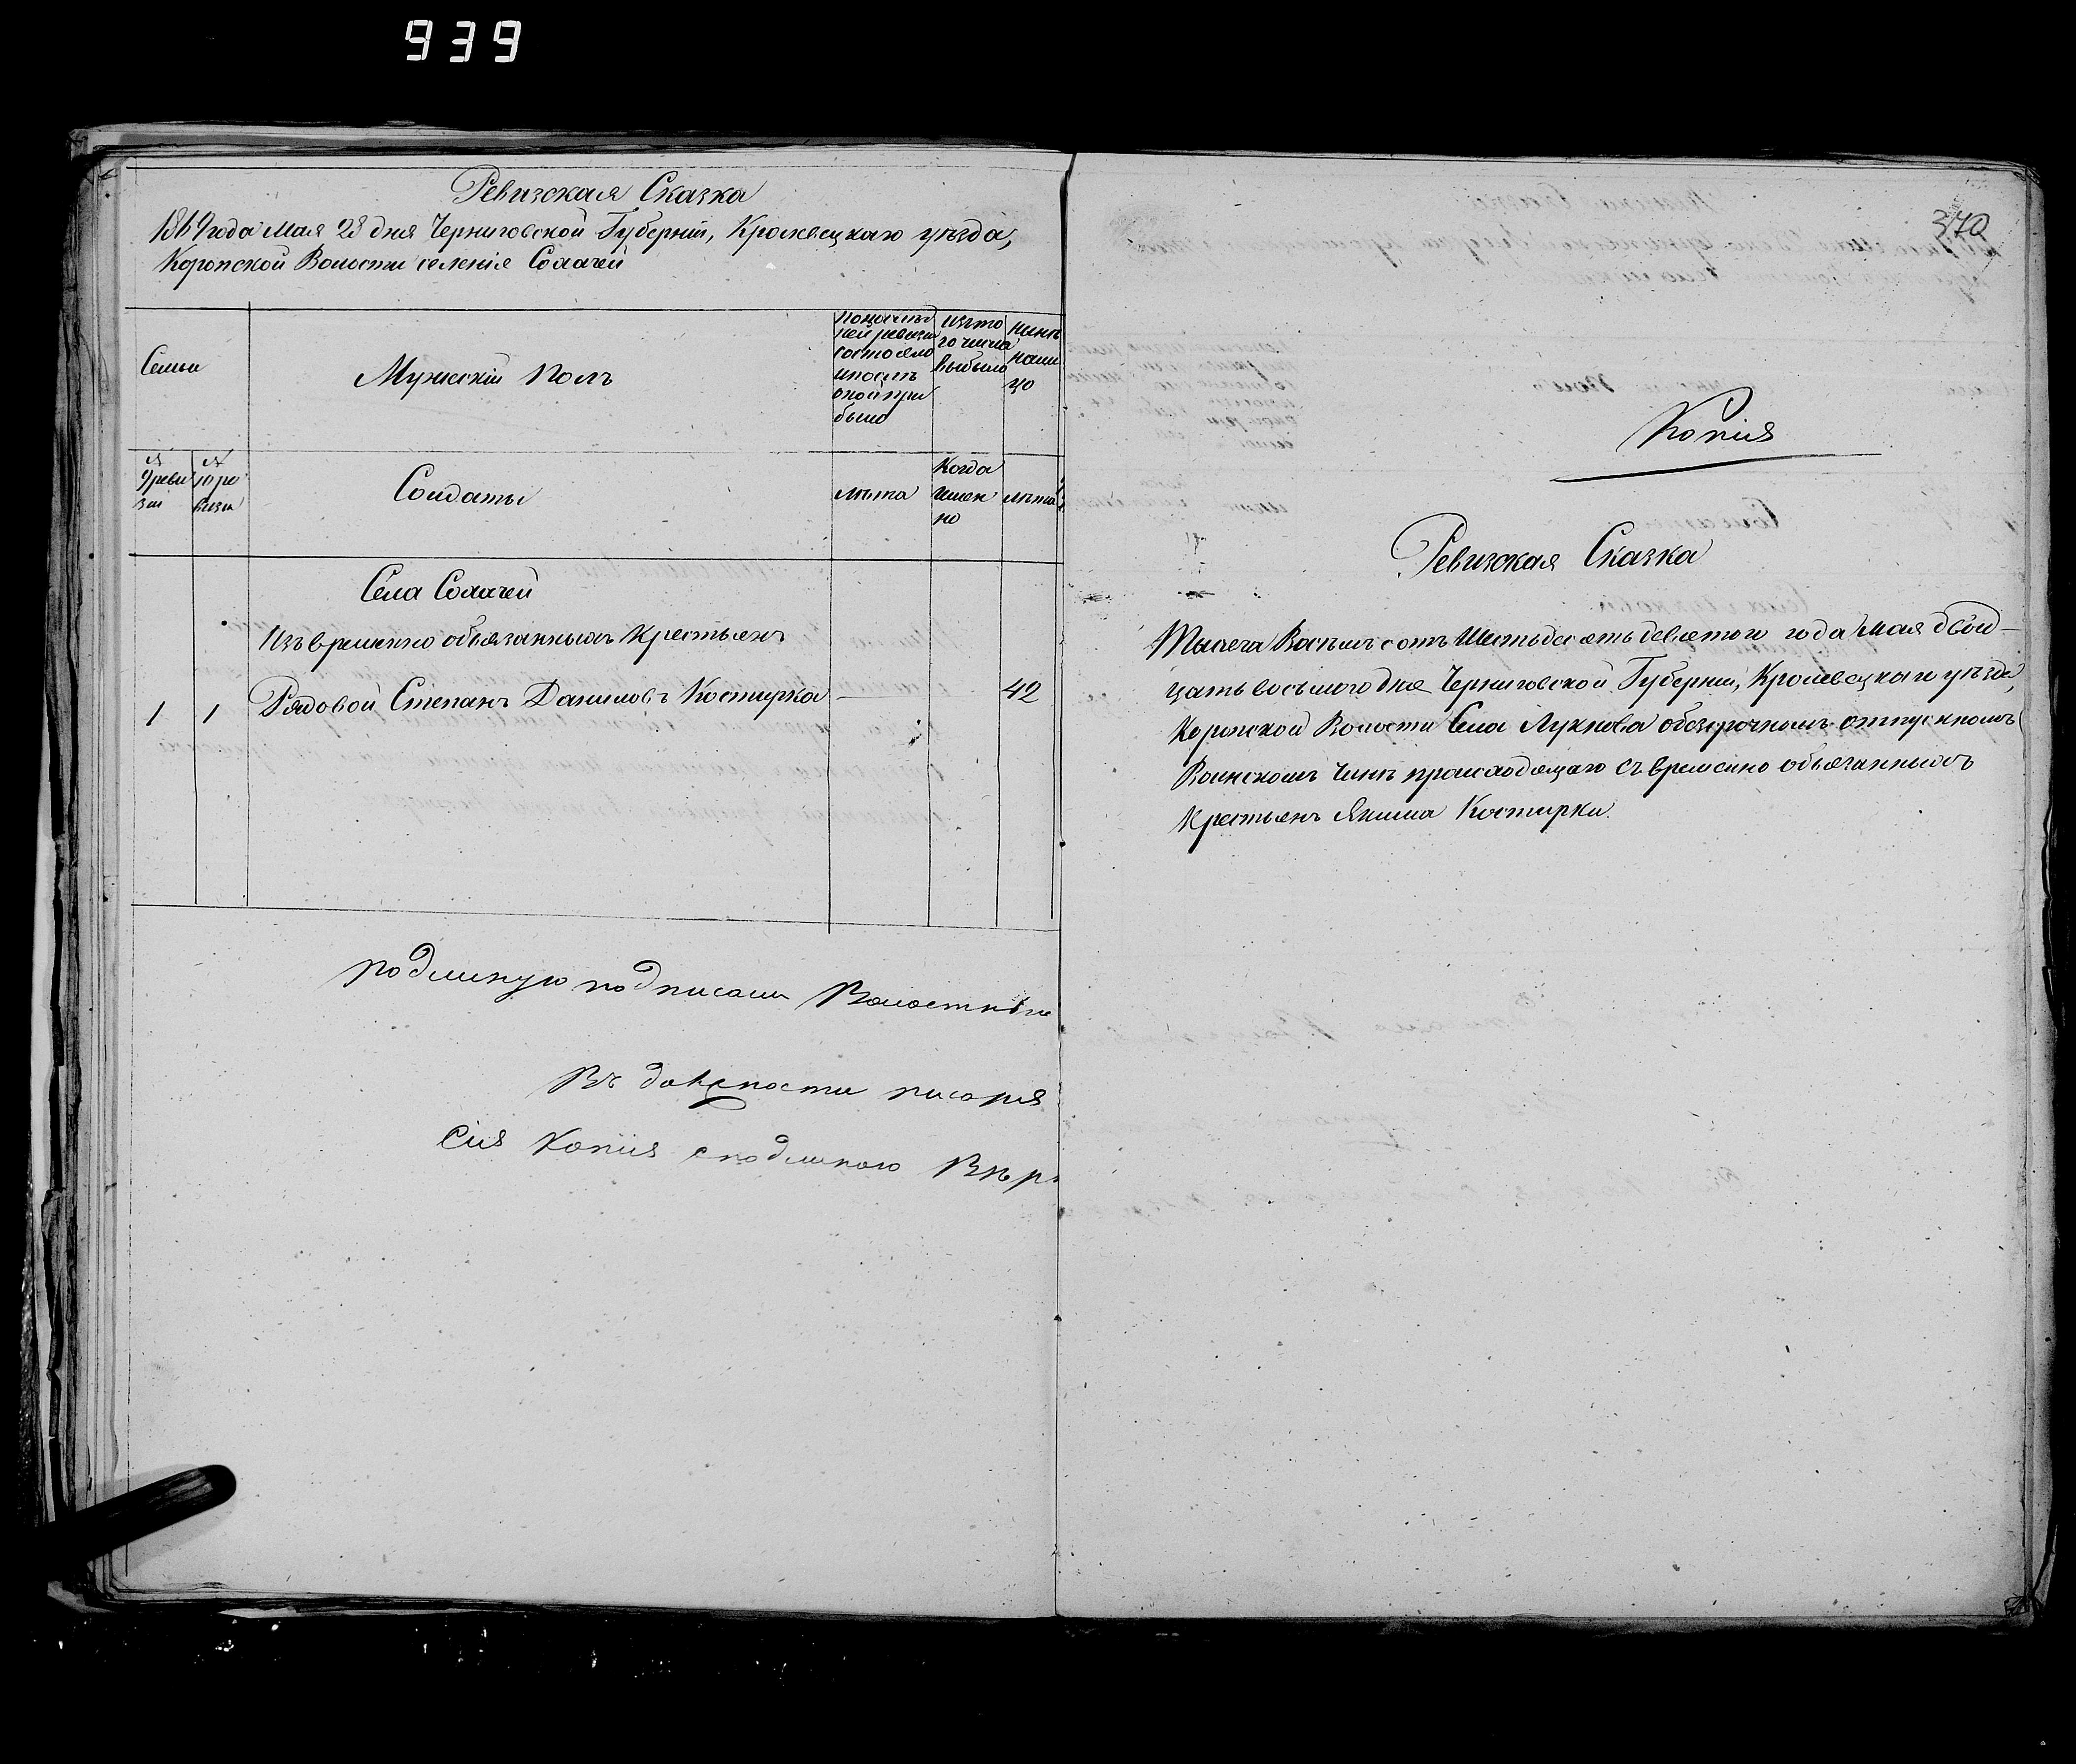 939
Ревизская Сказка
1869 года Мая 28 дня Черниговской Губерніи, Кролевецкаго уѣзда,
Коропской Волости селенія Сохачей
Семьи
Мужескій Полъ
По послѣд
ней ревизіи
состояло
и послѣ
оной при
было
Изъ то
го числа
выбыло
Нынѣ
на ли
цо
№
9 реви
зіи
№
10 ре
визіи
Солдаты
лѣта
Когда
имен
но
лѣта
Села Сохачей
Изъ временно обязанныхъ Крестьянъ
1 1 Рядовой Степанъ Даниловъ Костирка — 42
подлиную подписали Волостный
Въ должности писаря
Сия Копия с подлиною Вѣр
370
Копия
Ревизская Сказка
Тысеча Восемьсотъ Шестьдесять девятого года Мая двад-
цать восьмого дня Черниговской Губерніи, Кролевецкаго уѣзда,
Коропской Волости Села Лукнова обезсрочномъ отпускномъ
Воинскомъ Чинѣ происходящаго съ временно обязанныхъ
Крестьянъ Якима Костирки.